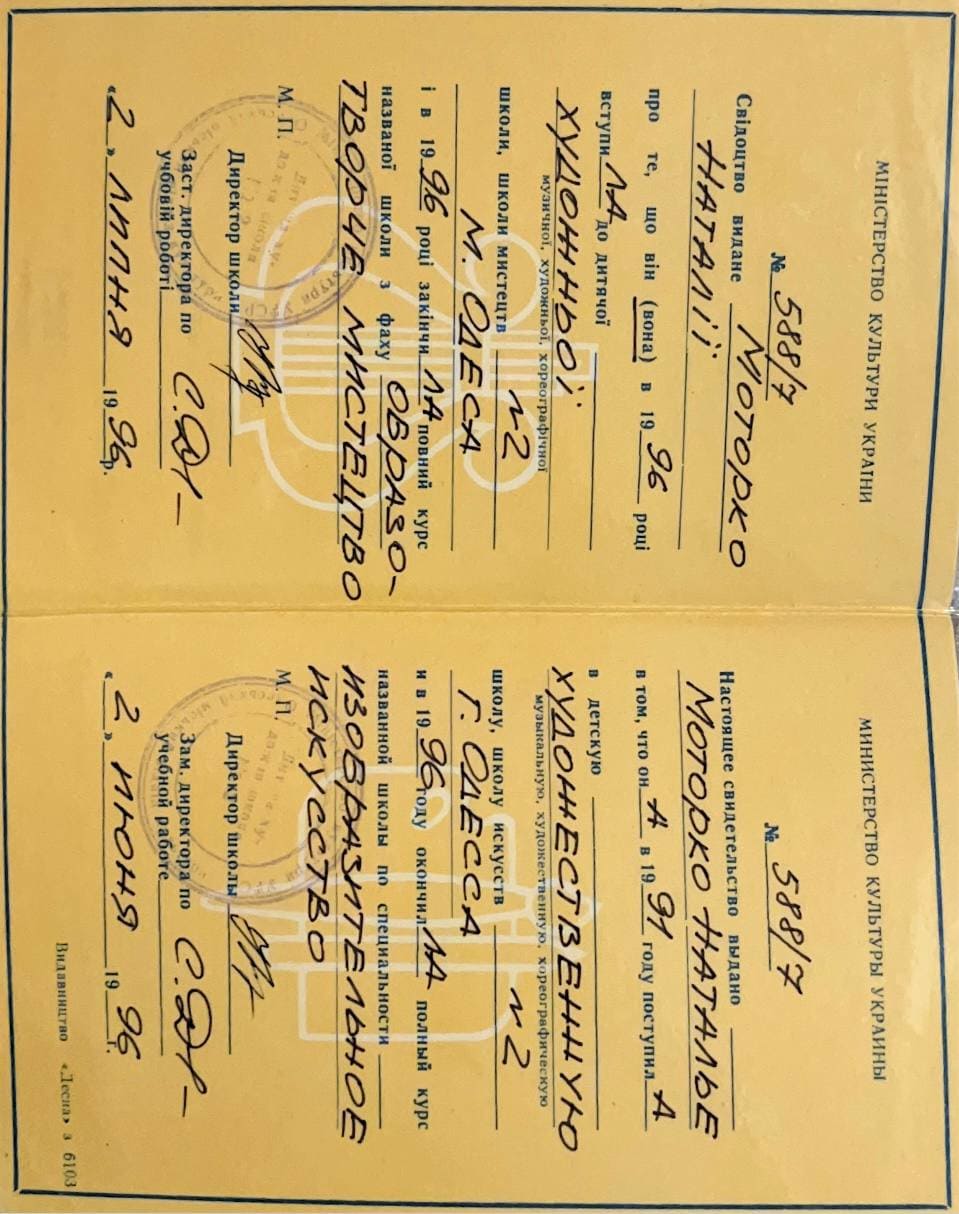 МІНІСТЕРСТВО КУЛЬТУРИ УКРАЇНИ
№ 588/7
Свідоцтво видане МОТОРКО
НАТАЛІЇ
про те, що він (вона) в 19 96 році
вступи ЛА до дитячої
ХУДОЖНЬОЇ
музичної, художньої, хореографічної
школи, школи мистецтв №2
М. ОДЕСА
і в 19 96 році закінчи ЛА повний курс
названої школи з фаху ОБРАЗО-
ТВОРЧЕ МИСТЕЦТВО
М. П.
Директор школи
Заст. директора по
учбовій роботі
« 2 » ЛИПНЯ 19 96 р.
МИНИСТЕРСТВО КУЛЬТУРЫ УКРАИНЫ
№ 588/7
Настоящее свидетельство выдано
МОТОРКО НАТАЛЬЕ
в том, что он А в 19 91 году поступил А
в детскую
ХУДОЖЕСТВЕННУЮ
музыкальную, художественную, хореографическую
школу, школу искусств №2
Г. ОДЕССА
и в 19 96 году окончил ЛА полный курс
названной школы по специальности
ИЗОБРАЗИТЕЛЬНОЕ
ИСКУССТВО
М. П.
Директор школы
Зам. директора по
учебной работе
« 2 » ИЮНЯ 19 96 г.
Видавництво «Десна» з 6103